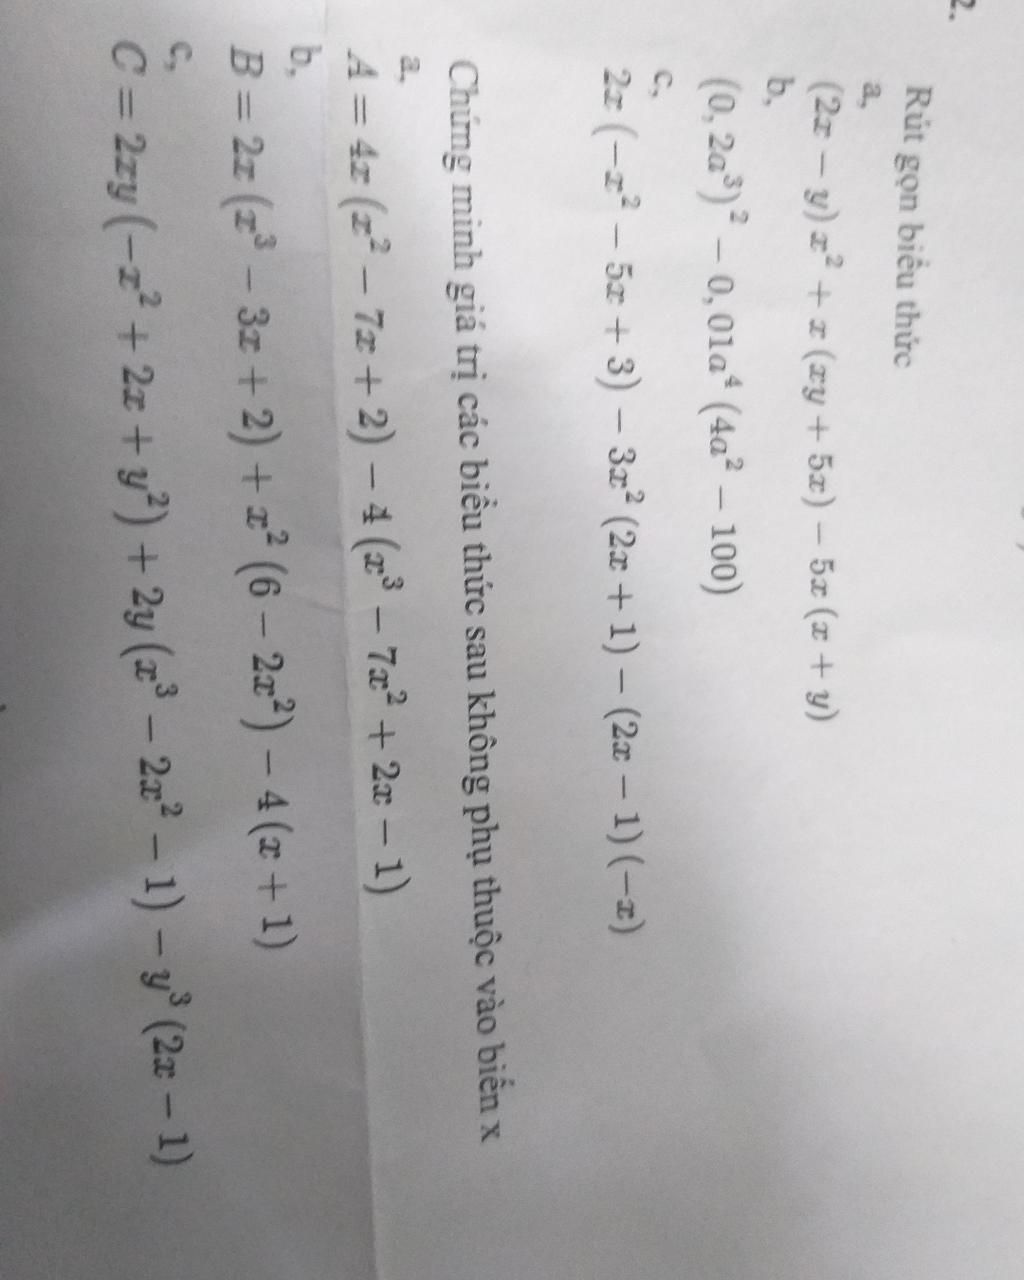 2.
Rút gọn biểu thức
a,
(2x − y) x² + x (xy + 5x) − 5x (x + y)
b,
(0, 2a³)² − 0, 01a⁴ (4a² − 100)
c,
2x (−x² − 5x + 3) − 3x² (2x + 1) − (2x − 1) (−x)
Chứng minh giá trị các biểu thức sau không phụ thuộc vào biến x
a,
A = 4x (x² − 7x + 2) − 4 (x³ − 7x² + 2x − 1)
b,
B = 2x (x³ − 3x + 2) + x² (6 − 2x²) − 4 (x + 1)
c,
C = 2xy (−x² + 2x + y²) + 2y (x³ − 2x² − 1) − y³ (2x − 1)